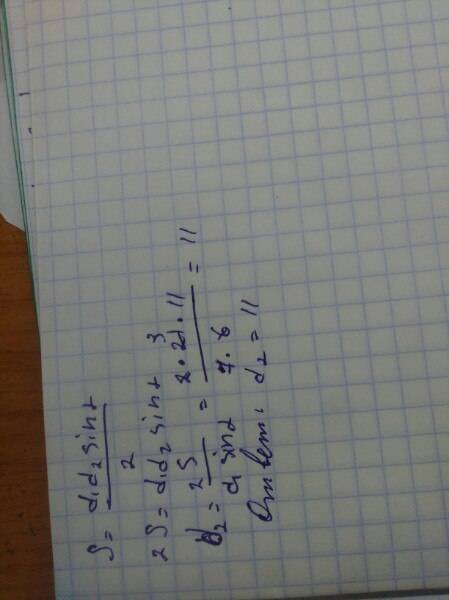 S = d₁d₂ sinα / 2
2S = d₁d₂ sinα
d₂ = 2S / d₁ sinα = 2 · 21 · 11 / 7 · 6 = 11
Ответ: d₂ = 11